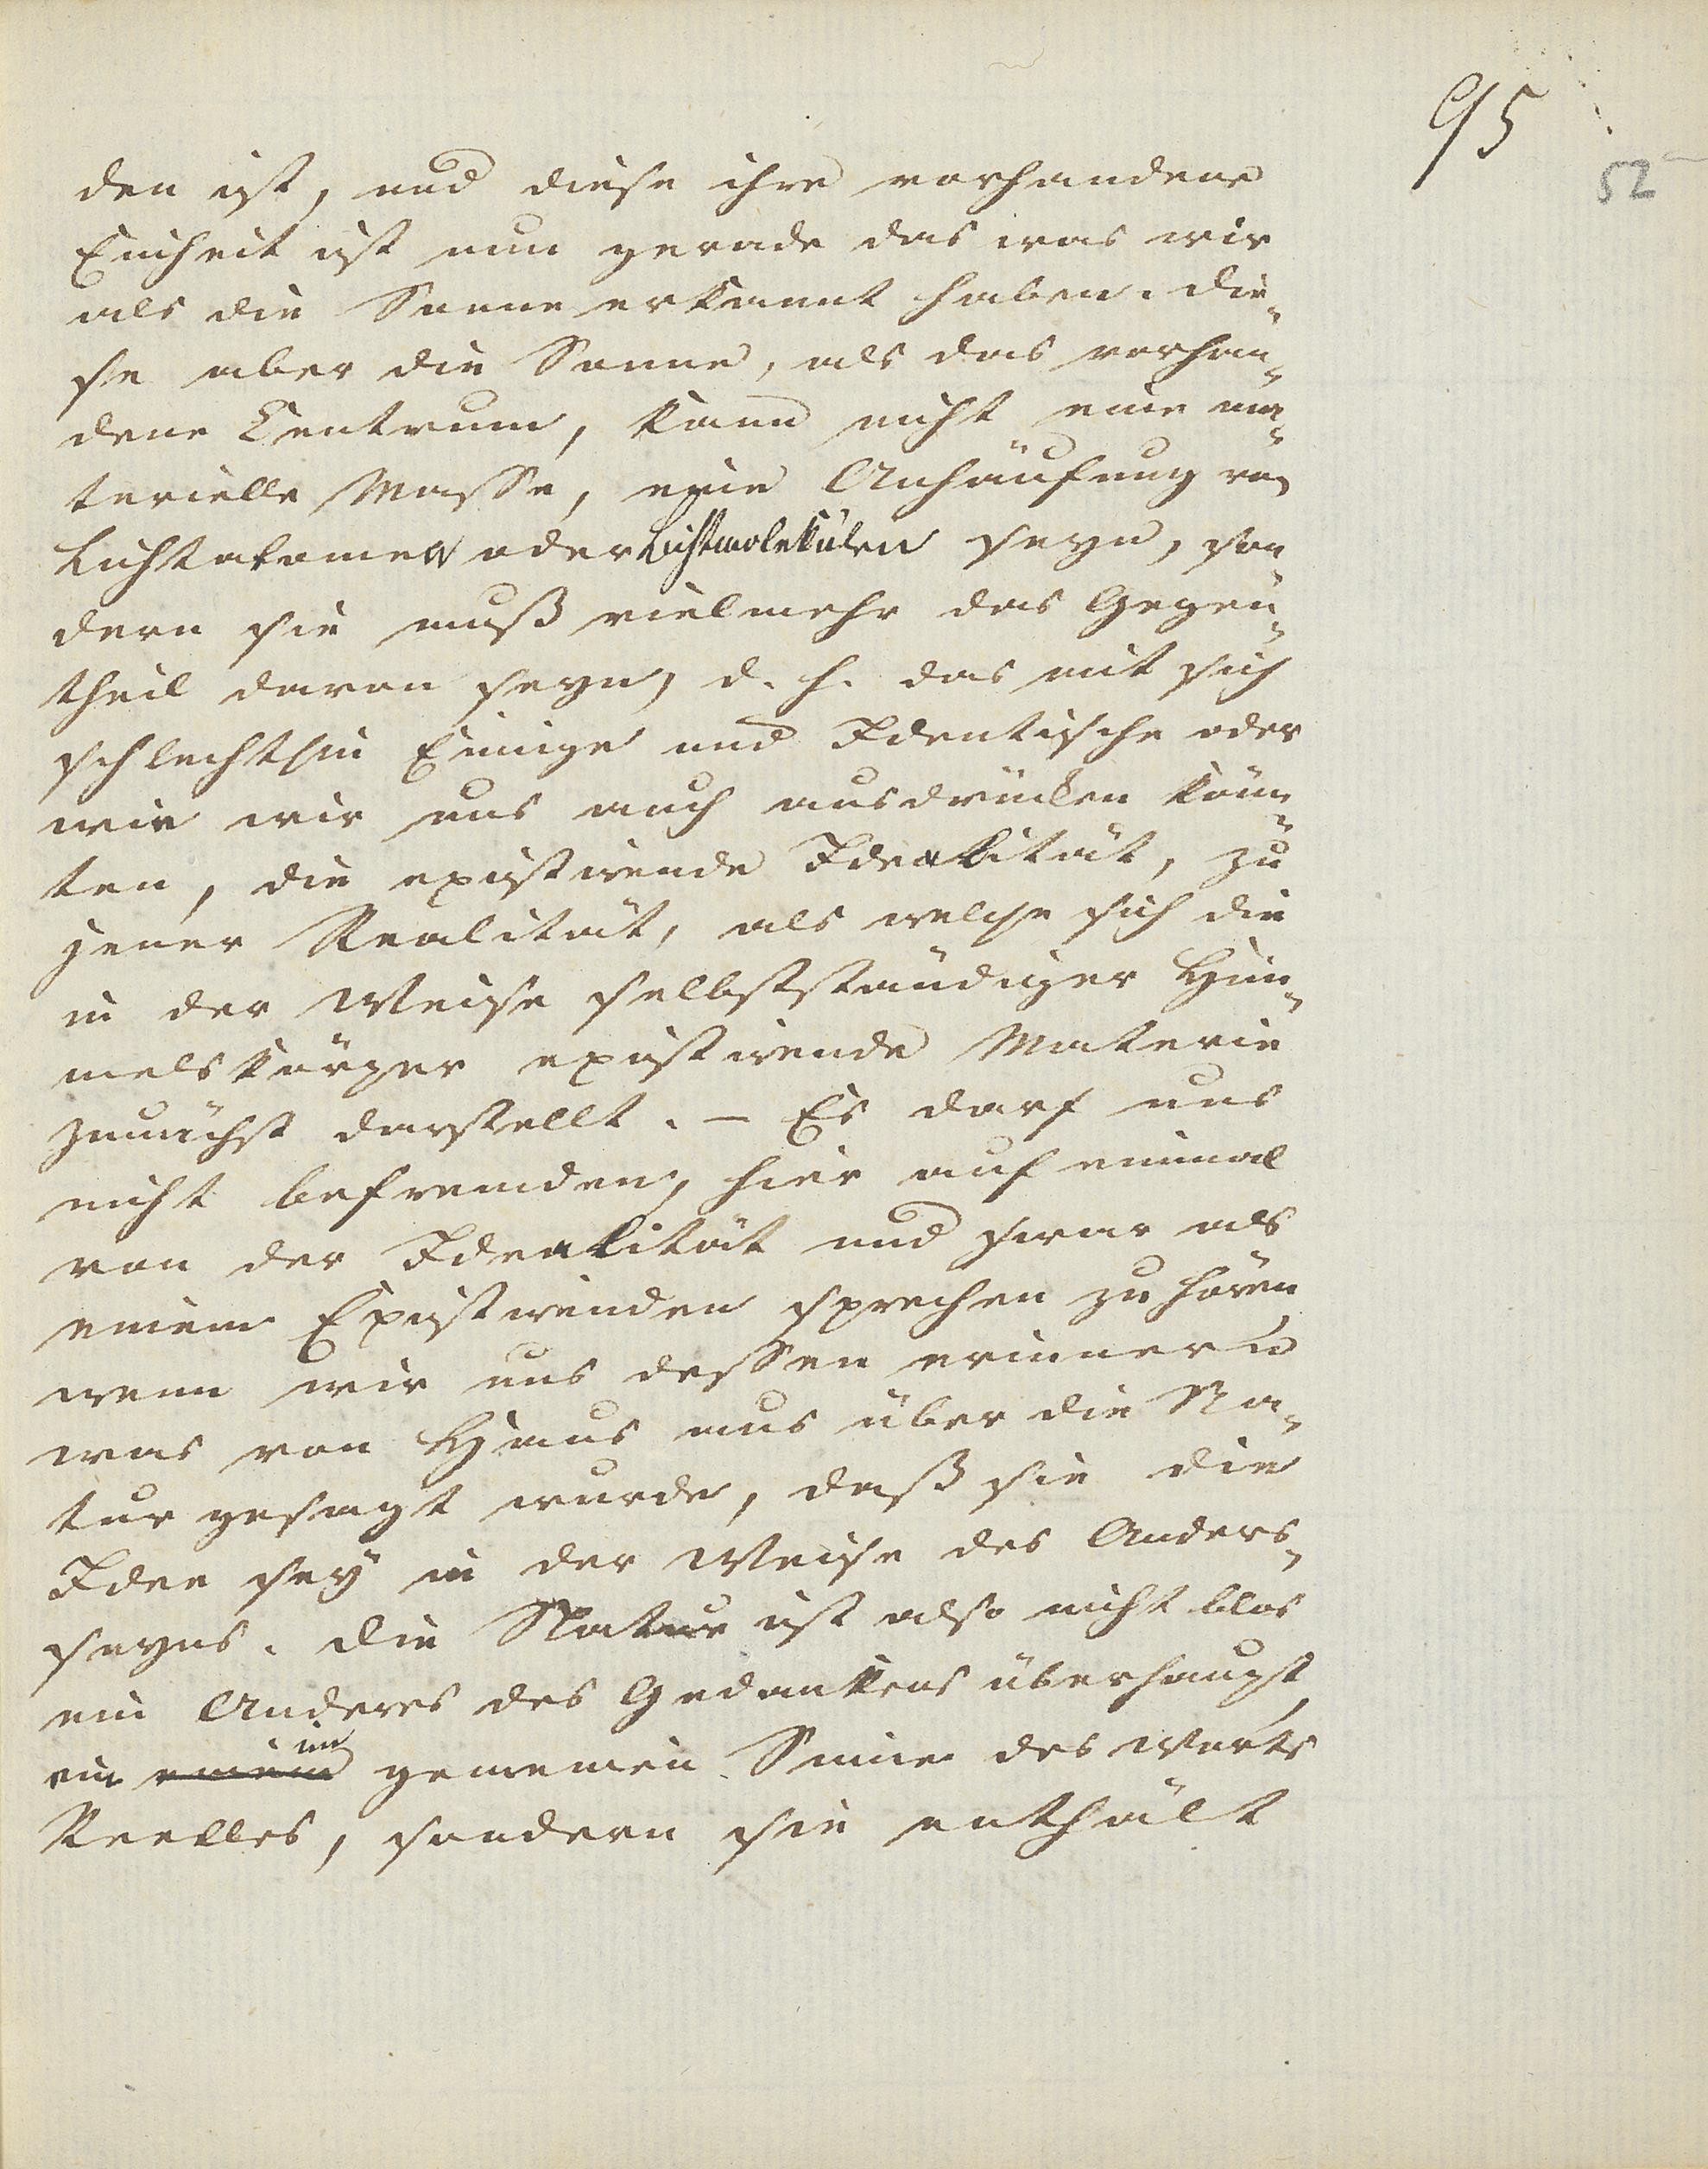 95
52
den ist, und diese ihre vorhandene
Einheit ist nun gerade das was wir
als die Sonne erkannt haben. Die-
se aber die Sonne, als das vorhan-
dene Centrum, kann nicht eine ma-
terielle Masse, eine Anhäufung von
Lichtatomen oder Lichtmolekülen seyn, son
dern sie muß vielmehr das Gegen-
theil davon seyn, d. h. das mit sich
schlechthin Einige und Identische oder
wie wir uns auch ausdrücken könn-
ten, die existirende Idealität, zu
jener Realität, als welche sich die
in der Weise selbstständiger Him-
melskörper existirende Materie
zunächst darstellt. – Es darf uns
nicht befremden, hier auf einmal
von der Idealität und zwar als
einem Existirenden sprechen zu hören
wenn wir uns dessen erinnern
was von Haus aus über die Na-
tur gesagt wurde, daß sie die
Idee sey in der Weise des Anders-
seyns. Die Natur ist also nicht blos
ein Anderes des Gedankens überhaupt,
ein einem im gemeinen Sinne des Worts
Reelles, sondern sie enthält